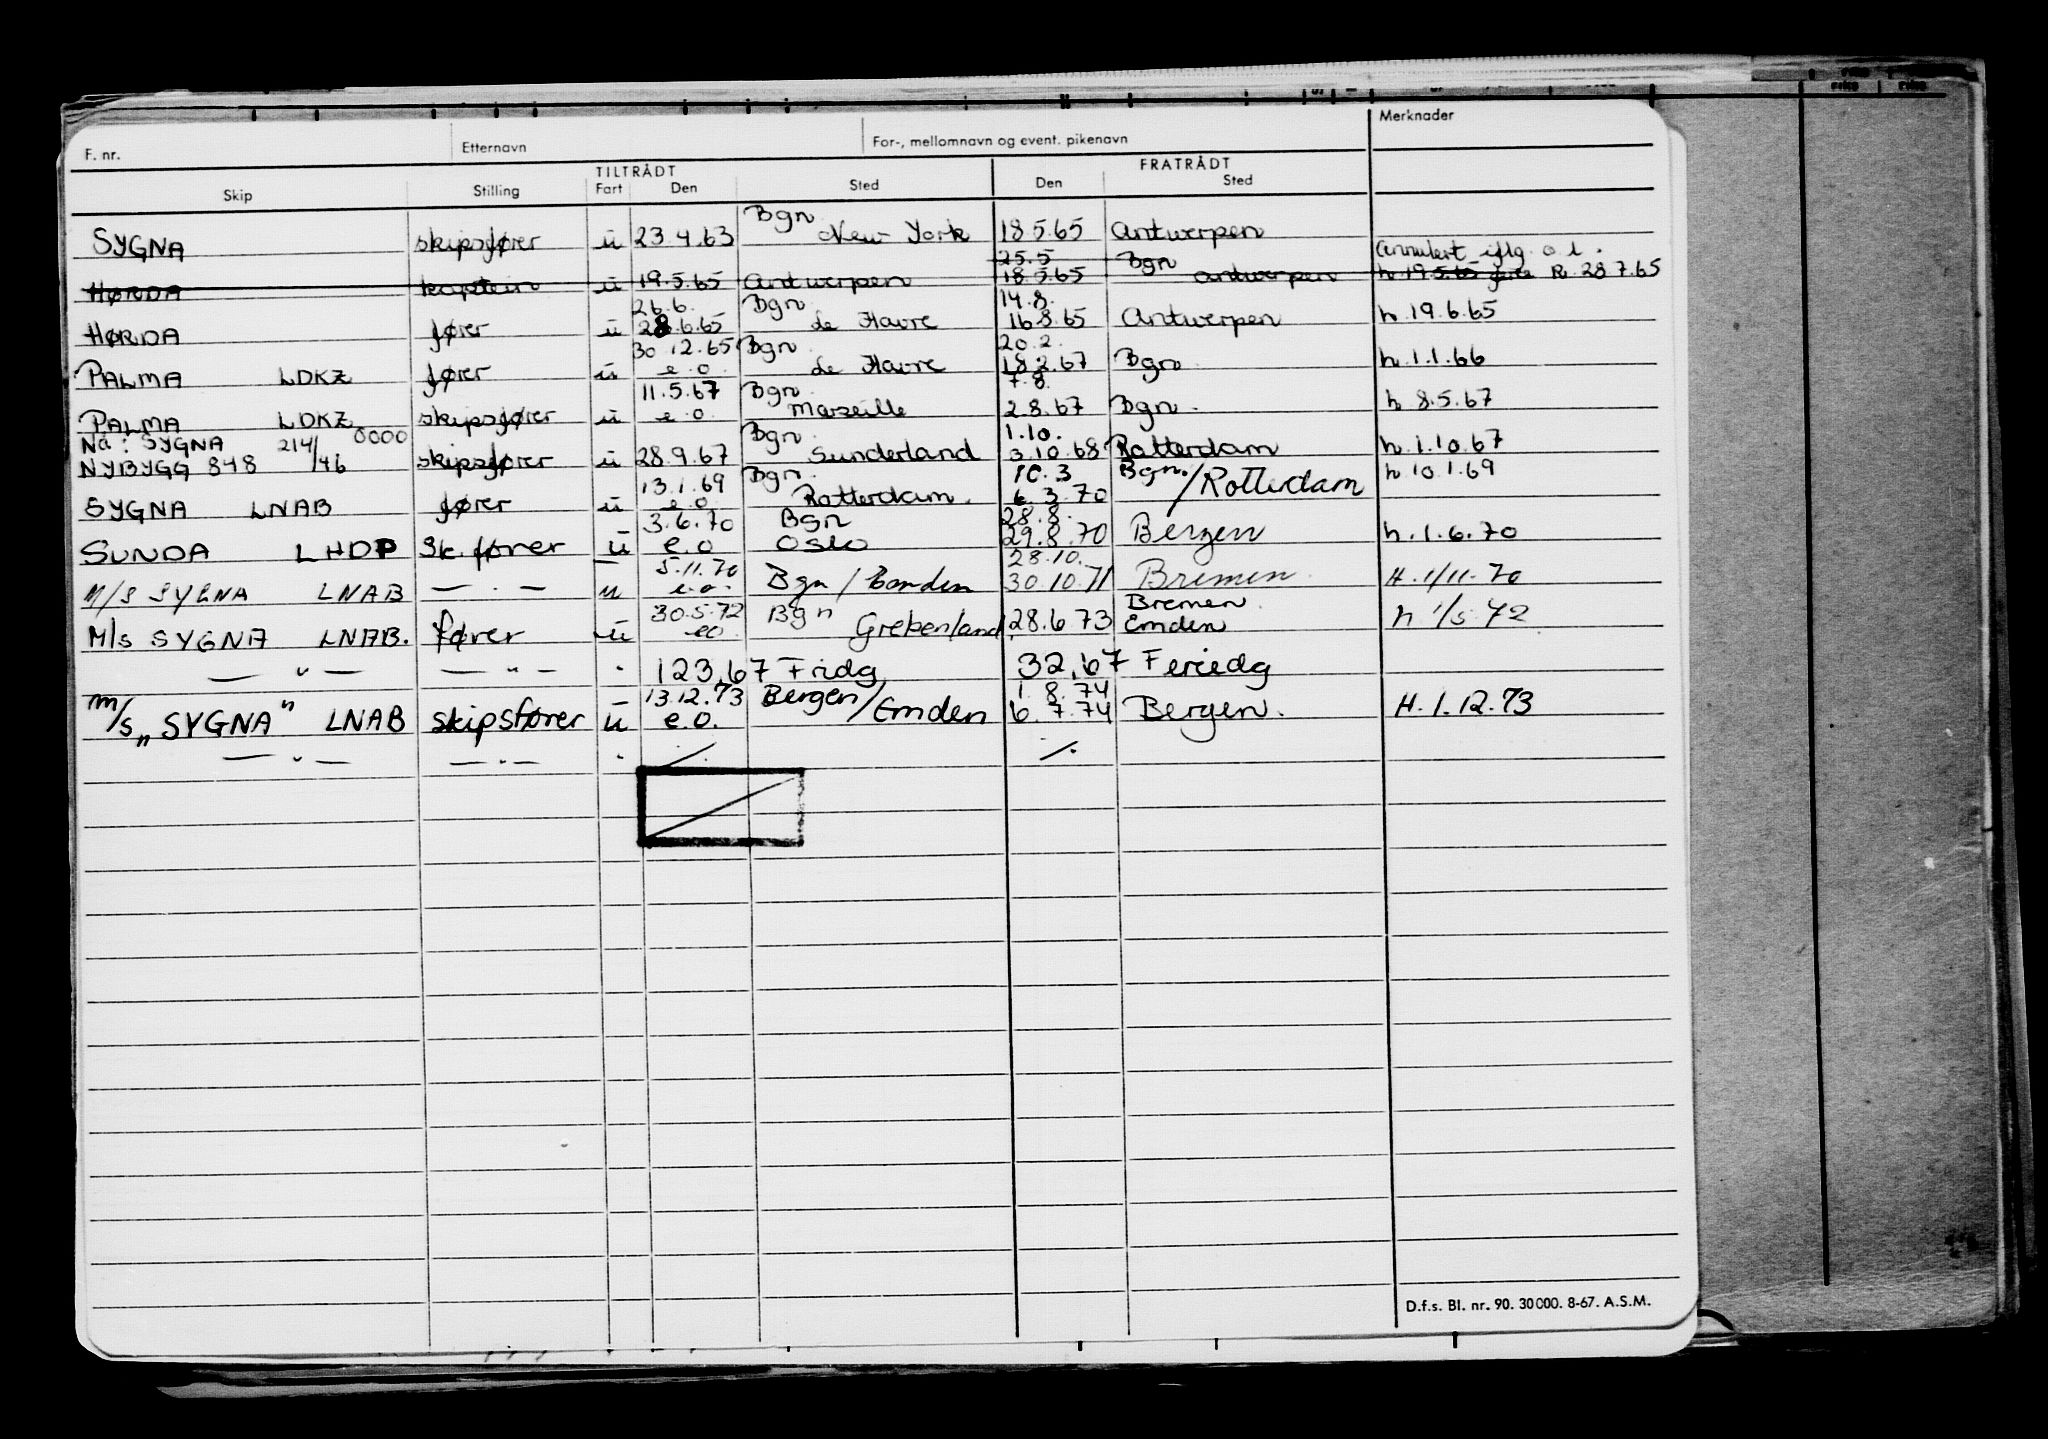 F. nr. Etternavn For-, mellomnavn og event. pikenavn Merknader
TILTRÅDT FRATRÅDT
Skip Stilling Fart Den Sted Den Sted
Bgn
SYGNA skipsfører u 23.4.63 New York 18.5.65 Antwerpen
25.5 Bgn Annulert iflg. o.l.
HØRDA kaptein u 19.5.65 Antwerpen 18.5.65 Antwerpen h 19.5.65 R. 28.7.65
26.6. Bgn 14.8.
HØRDA fører u 28.6.65 Le Havre 16.8.65 Antwerpen h 19.6.65
30.12.65 Bgn 20.2.
PALMA LDKZ fører u e.o. Le Havre 18.2.67 Bgn h.1.1.66
11.5.67 Bgn 7.8.
PALMA LDKZ skipsfører u e.o. Marseille 2.8.67 Bgn. h 8.5.67
Nå: SYGNA 214/ 0000 Bgn. 1.10.
NYBYGG 848 /46 skipsfører u 28.9.67 Sunderland 3.10.68 Rotterdam h.1.10.67
13.1.69 Bgn. 10.3 Bgn.
SYGNA LNAB fører u e.o. Rotterdam 6.3.70 /Rotterdam h 10.1.69
3.6.70 Bgn 28.8.
SUNDA LHDP Sk.fører u e.o Oslo 29.8.70 Bergen h.1.6.70
5.11.70 28.10.
M/S SYGNA LNAB — . — u e.o. Bgn / Emden 30.10.71 Bremen H. 1/11-70
30.5.72 Bgn Bremen
M/s SYGNA LNAB. fører u eo Grekenland 28.6 73 Emden h 1/5 72
— " — — " — 123,67 Fridg 32,67 Feriedg
13.12.73 Bergen/ 1.8.74
m/s "SYGNA" LNAB skipsfører u e.o. Emden 6.7.74 Bergen. H.1.12.73
— " — — " — ./. ./.
D.f.s. Bl. nr. 90. 30000. 8-67. A.S.M.